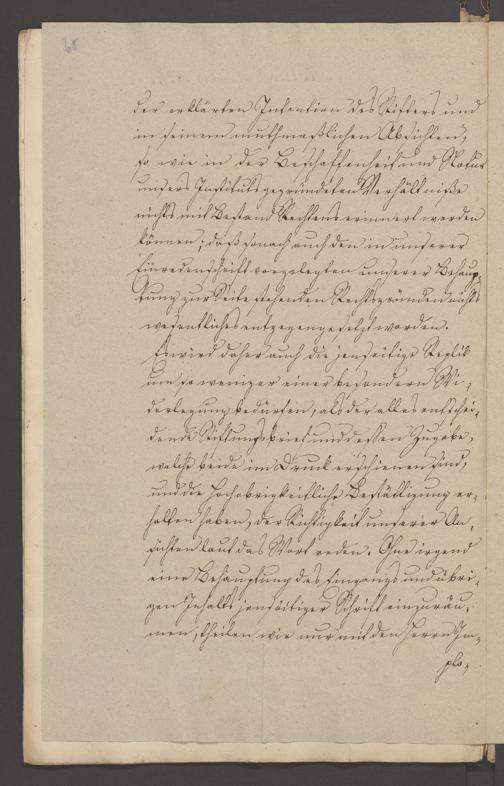 der erklärten Intention des Stifters und
in seinem muthmaßlichen Absichten,
so wie in der Beschaffenheit und Natur
unsers Instituts gegründeten Verhältniße
nichts mit Bestand Rechtens erinnert werden
können; daß sonach auch den in unserer
Einredenschrift vorgelegten unserer Behaup-
tung zur Seite stehenden Rechtsgründen nichts
wesentliches entgegengesetzt worden.
Es wird daher auch die jenseitige Replik
um so weniger einer besondern Wi-
derlegung bedürfen, als der alles entschei-
dende Stiftungsbrief und deßen Zugabe,
welche beide im Druck erschienen sind,
und die hochobrigkeitliche Bestättigung er-
halten haben, der Richtigkeit unserer An-
sichten laut das Wort reden. Ohne irgend
eine Behauptung des Eingangs und übri-
gen Inhalts jenseitiger Schrift einzuräu-
men, theilen wir nur mit den Herrn Im-
plo-